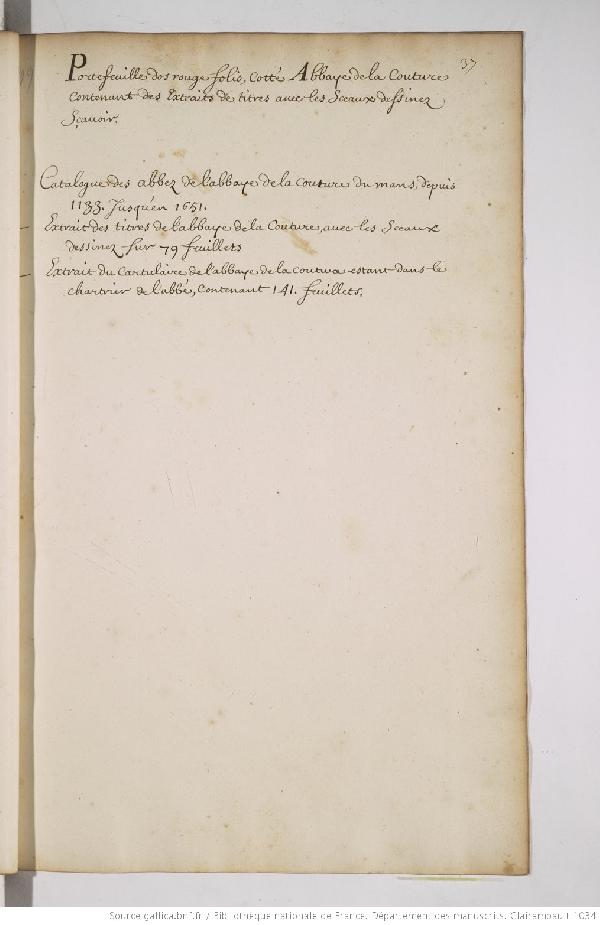 37
Portefeuille dos rouge folio, Cotté Abbaye de la Couture
Contenant des Extraits de titres avec les Sceaux dessinez
Sçavoir.
Catalogue des abbez de l'abbaye de la Couture du mans, depuis
1133. Jusqu'en 1651.
Extrait des titres de l'abbaye de la Couture, avec les Sceaux
dessinez sur 79 feuillets
Extrait du Cartulaire de l'abbaye de la Coutura estant dans le
chartrier de l'abbé, Contenant 141. feuillets.
Source gallica.bnf.fr / Bibliothèque nationale de France. Département des manuscrits. Clairambault 1034